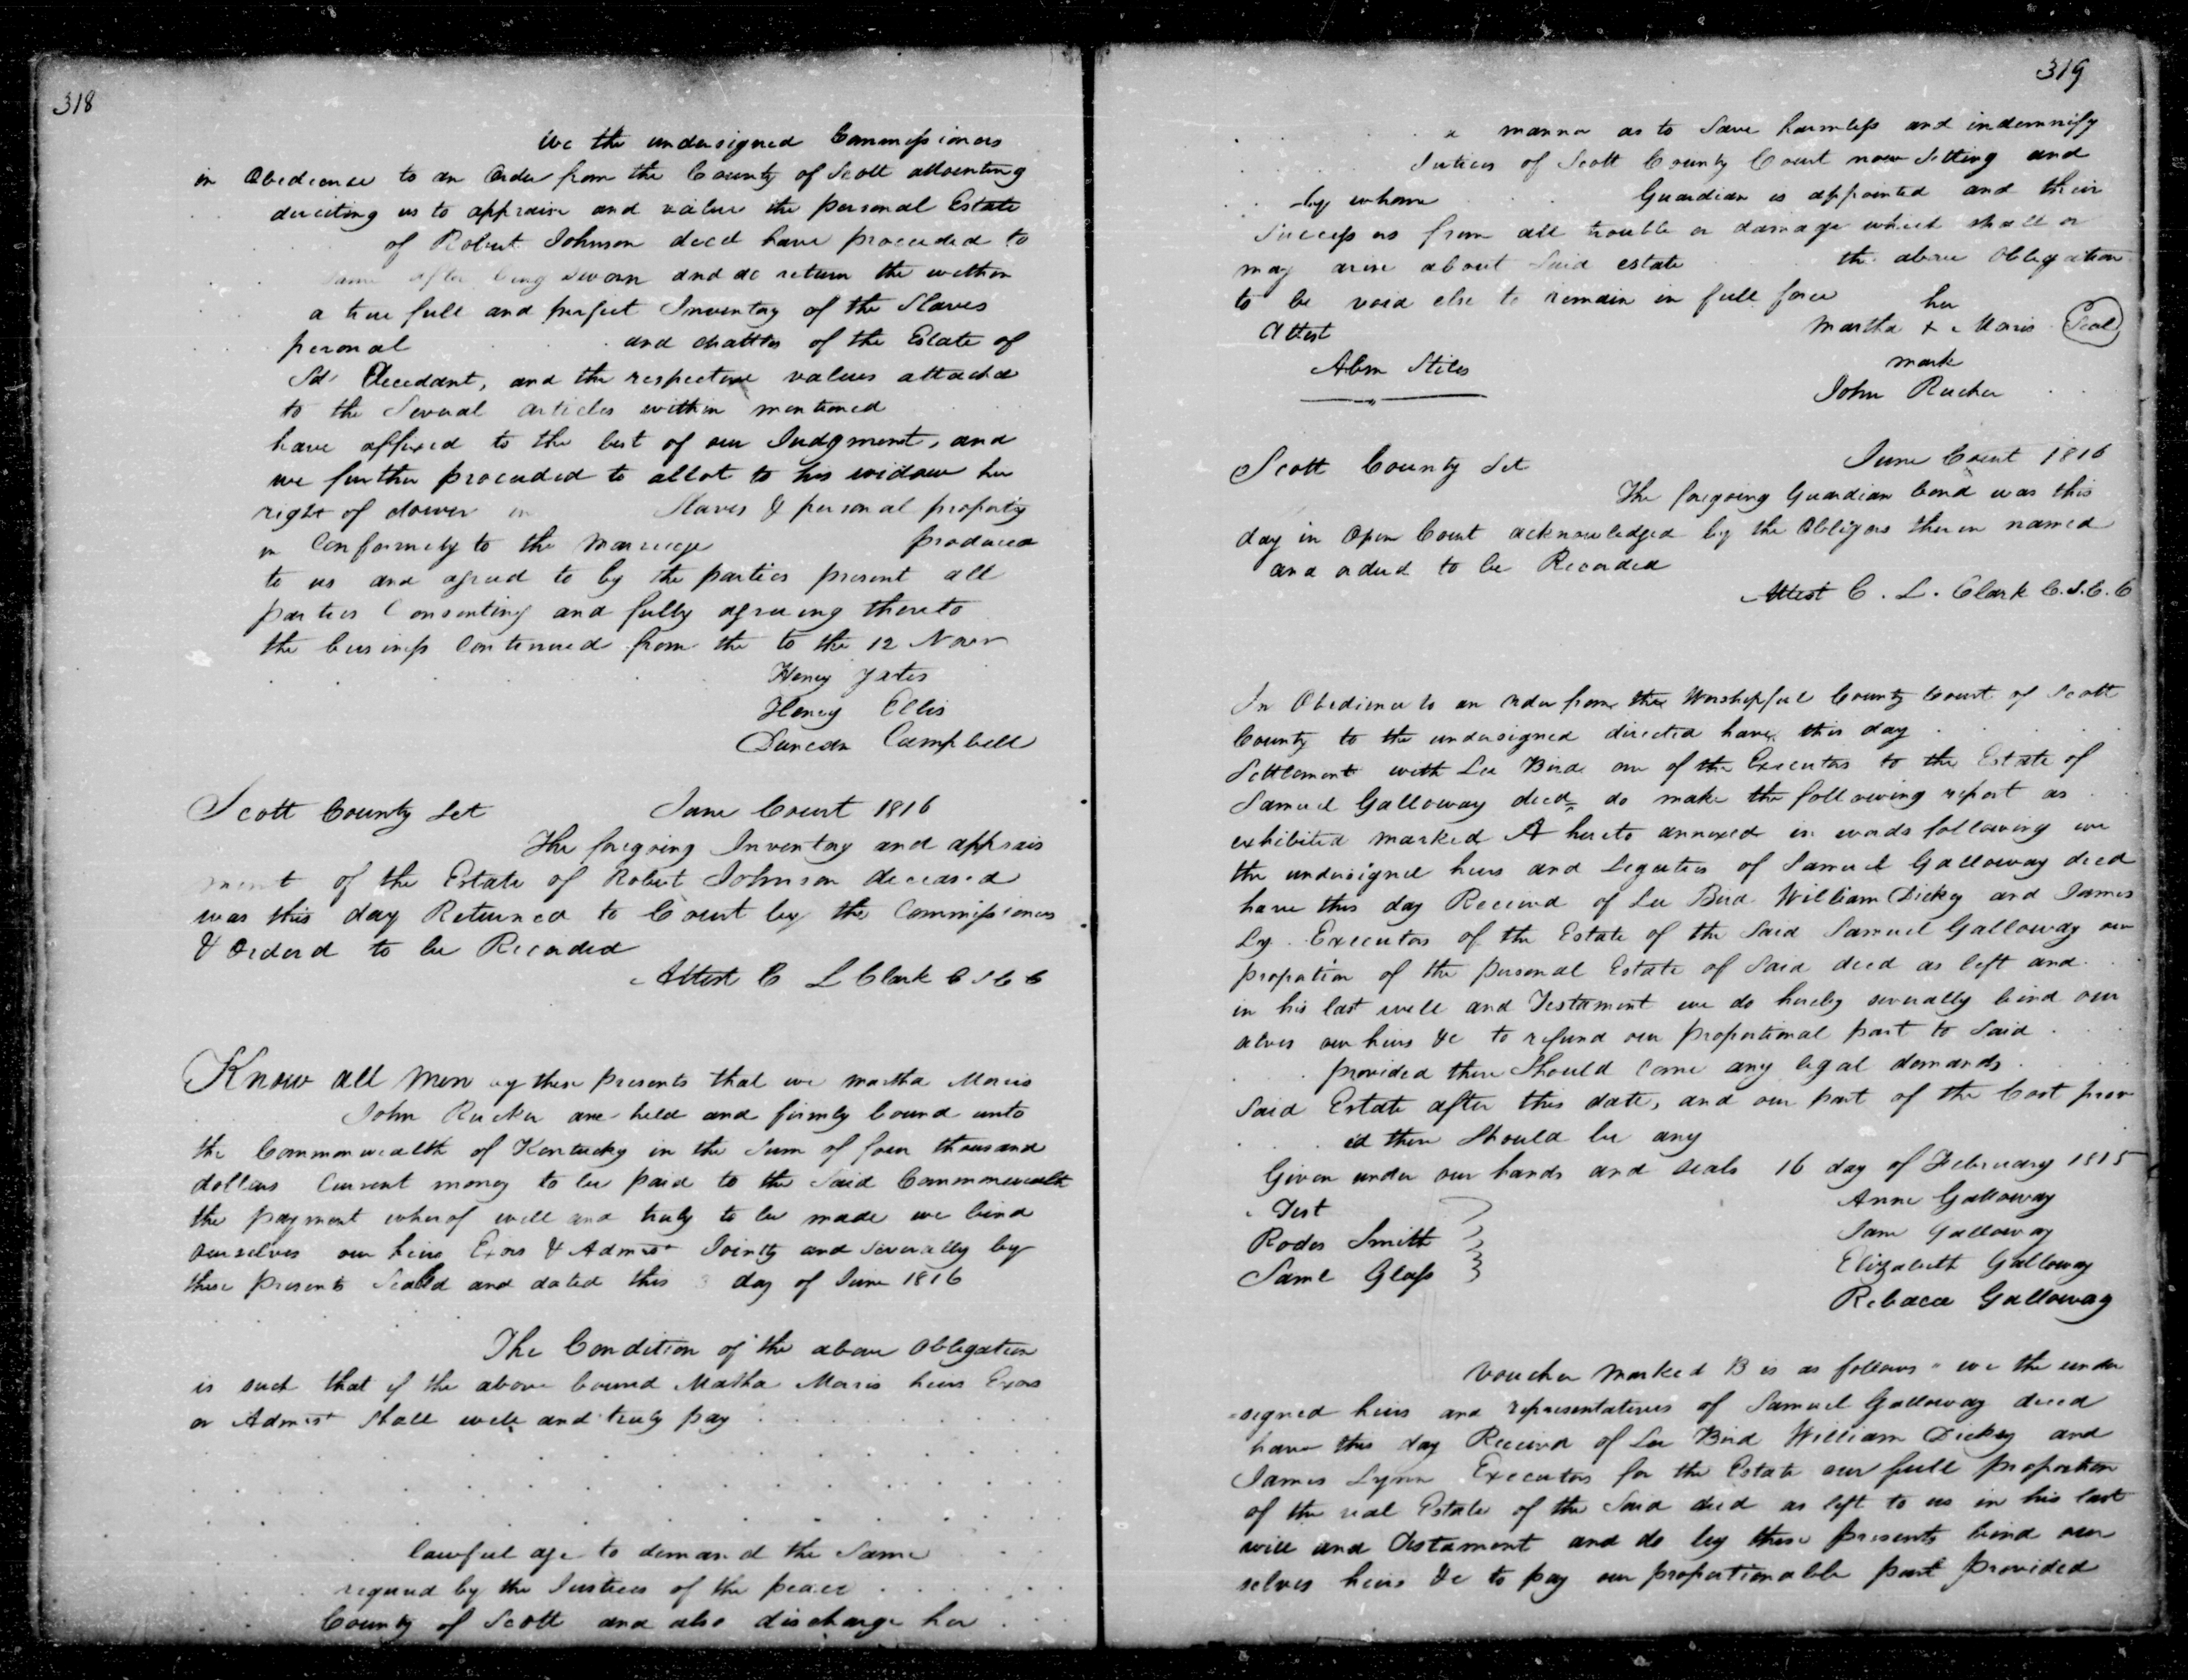 318
We the undersigned Commissioners
in Obedience to an Order from the County of Scott
directing us to appraise and value the personal Estate
of Robert Johnson decd have proceeded to
same after being sworn and do return the within
a true full and perfect Inventory of the Slaves
personal and chattles of the Estate of
Sd Decedant, and the respective values attached
to the Several articles within mentioned
have affixed to the best of our Judgment, and
we further proceeded to allot to his widow her
right of dower in Slaves & personal property
in Conformity to the Marriage produced
to us and agreed to by the parties present all
parties Consenting and fully agreeing thereto
the business Continued from the to the 12 Novr
Henry Yates
Henry Ellis
Duncan Campbell
Scott County Set June Court 1816
The foregoing Inventory and apprais
ment of the Estate of Robert Johnson deceased
was this day Returned to Court by the Commissioners
& Orderd to be Recorded
Attest C L Clark C S C C
Know all Men by these presents that we Martha Moris
John Rucker are held and firmly bound unto
the Commonwealth of Kentucky in the Sum of four thousand
dollars Current money to be paid to the Said Commonwealth
the payment whereof well and truly to be made we bind
Ourselves our heirs Exors & Admrs Jointly and Severally by
these presents Sealed and dated this 3 day of June 1816
The Condition of the above Obligation
is such that if the above bound Matha Moris heirs Exors
or Admrs Shall well and truly pay
lawful age to demand the Same
required by the Justices of the peace
County of Scott and also discharge her
319
a manner as to Save harmless and indemnify
Justices of Scott County Court now Sitting and
by whom Guardian is appointed and their
Successors from all trouble or damage which shall or
may arise about Said estate the above Obligation
to be void else to remain in full force
her
Attest Martha + Moris Seal
mark
Abm Stiles
John Rucker
Scott County Set June Court 1816
The foregoing Guardian bond was this
day in Open Court acknowledged by the Obligors therein named
and orderd to be Recorded
Attest C. L. Clark C.S.C.C
In Obedience to an order from the Worshipful County Court of Scott
County to the undersigned directed have this day
Settlement with Lee Bird one of the Executors to the Estate of
Samuel Galloway decd do make the following report as
exhibited marked A hereto annexed in words following we
the undersigned heirs and Legatees of Samuel Galloway decd
have this day Received of Lee Bird William Dickey and James
Ly Executors of the Estate of the Said Samuel Galloway our
proportion of the personal Estate of Said decd as left and
in his last will and Testament we do hereby severally bind our
selves our heirs &c to refund our proportional part to Said
provided there Should Come any legal demands
Said Estate after this date, and our part of the Cost prov
id there Should be any
Given under our hands and seals 16 day of February 1815
Test
Rodes Smith
Saml Glass
Anne Galloway
Jane Galloway
Elizabeth Galloway
Rebacca Galloway
Voucher Marked B is as follows " we the under
=signed heirs and representatives of Samuel Galloway decd
have this day Received of Lee Bird William Dickey and
James Lynn Executors for the Estate our full proportion
of the real Estate of the Said decd as left to us in his last
will and Testament and do by these presents bind our
selves heirs &c to pay our proportionable part provided